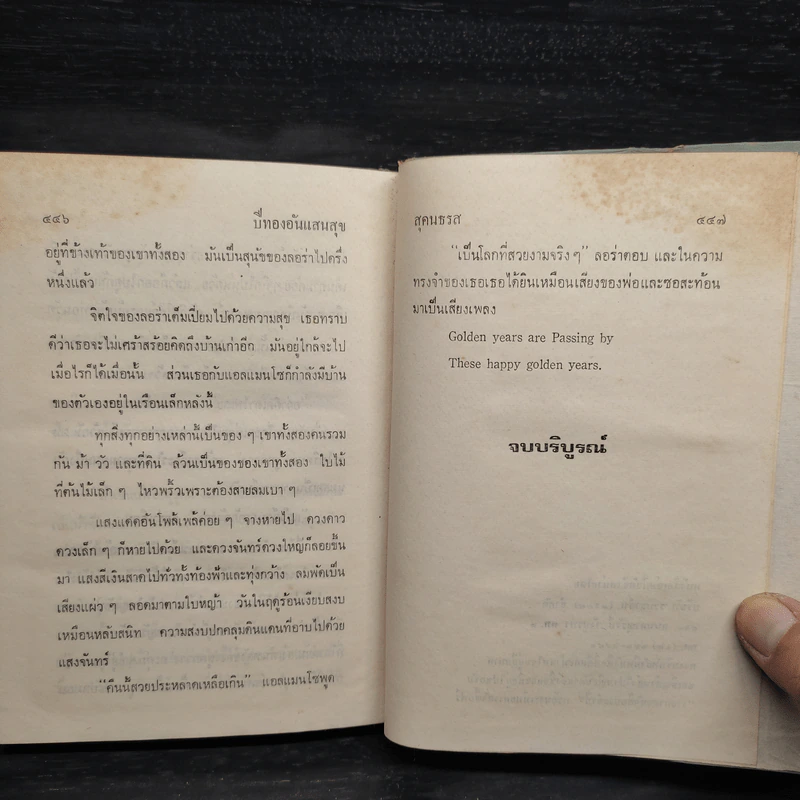 ๔๔๖
ปีทองอันแสนสุข
อยู่ที่ข้างเท้าของเขาทั้งสอง มันเป็นสุนัขของลอร่าไปครึ่ง
หนึ่งแล้ว
จิตใจของลอร่าเต็มเปี่ยมไปด้วยความสุข เธอทราบ
ดีว่าเธอจะไม่เศร้าสร้อยคิดถึงบ้านเก่าอีก มันอยู่ใกล้จะไป
เมื่อไรก็ได้เมื่อนั้น ส่วนเธอกับแอลแมนโซก็กำลังมีบ้าน
ของตัวเองอยู่ในเรือนเล็กหลังนี้
ทุกสิ่งทุกอย่างเหล่านี้เป็นของ ๆ เขาทั้งสองคนรวม
กัน ม้า วัว และที่ดิน ล้วนเป็นของของเขาทั้งสอง ใบไม้
ที่ต้นไม้เล็ก ๆ ไหวพริ้วเพราะต้องสายลมเบา ๆ
แสงแดดอันโพล้เพล้ค่อย ๆ จางหายไป ดวงดาว
ดวงเล็ก ๆ ก็หายไปด้วย และดวงจันทร์ดวงใหญ่ก็ลอยขึ้น
มา แสงสีเงินสาดไปทั่วทั้งท้องฟ้าและทุ่งกว้าง ลมพัดเป็น
เสียงแผ่ว ๆ ลอดมาตามใบหญ้า วันในฤดูร้อนเงียบสงบ
เหมือนหลับสนิท ความสงบปกคลุมดินแดนที่อาบไปด้วย
แสงจันทร์
“คืนนี้สวยประหลาดเหลือเกิน” แอลแมนโซพูด
สุคนธรส
๔๔๗
“เป็นโลกที่สวยงามจริง ๆ” ลอร่าตอบ และในความ
ทรงจำของเธอเธอได้ยินเหมือนเสียงของพ่อและซอสะท้อน
มาเป็นเสียงเพลง
Golden years are Passing by
These happy golden years.
จบบริบูรณ์